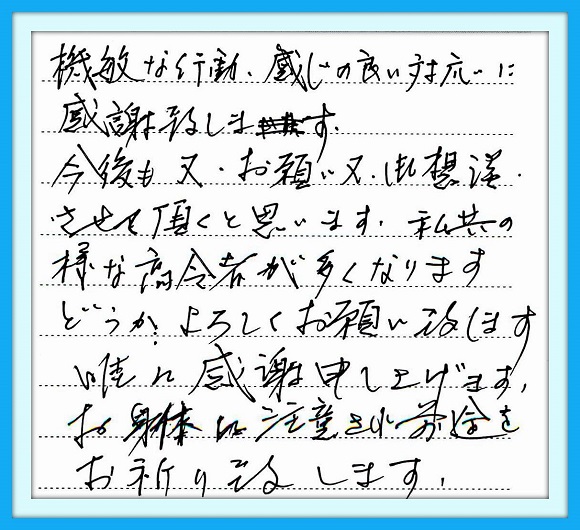 機敏な行動、感じの良い対応に
感謝致します。
今後も又、お願い又、御相談
させて頂くと思います。私共の
様な高令者が多くなります
どうか、よろしくお願い致します
唯に感謝申し上げます。
お身体に注意され前途を
お祈り致します。